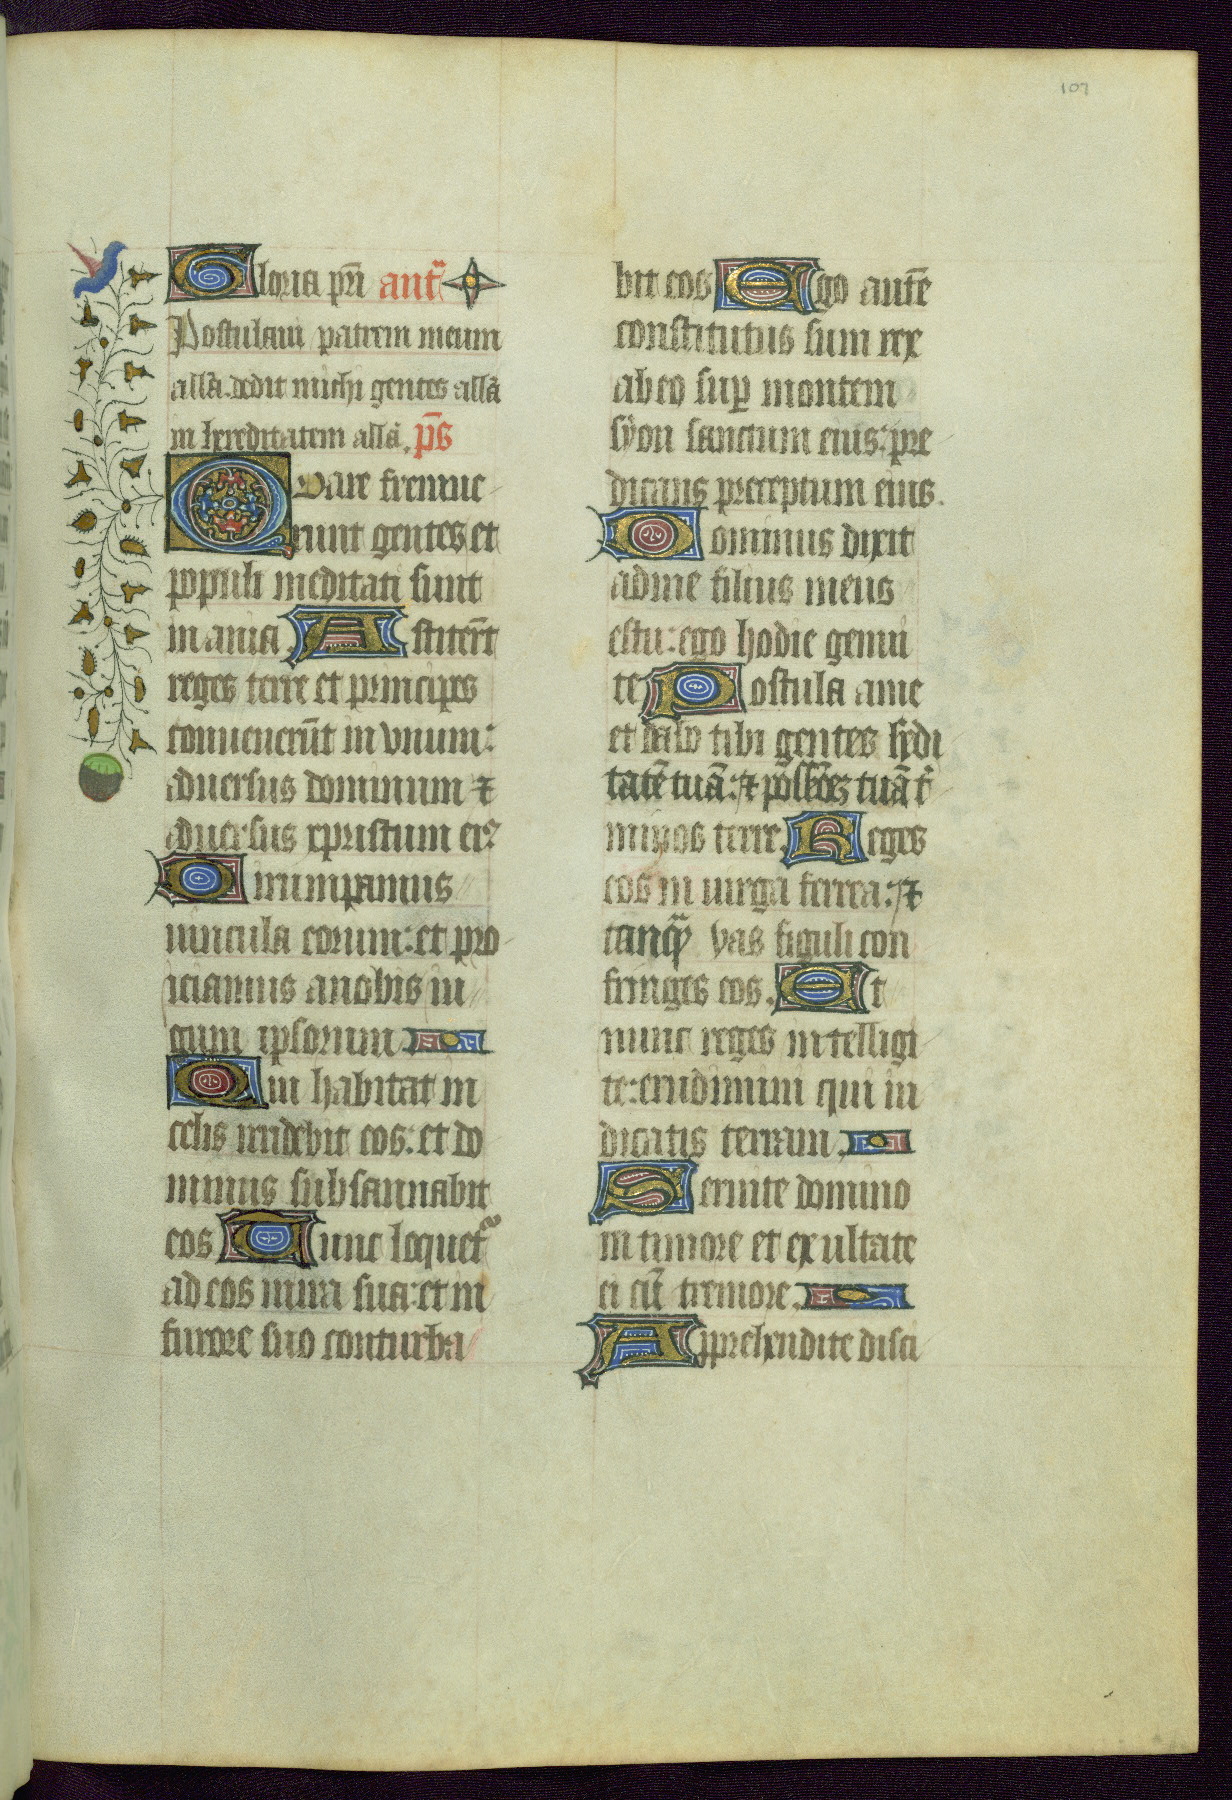 107
Gloria pri ant̄
Postulaui patrem meum
allā. dedit michi gentes allā
in hereditatem allā. p̄s
Quare fremue
runt gentes et
populi meditati sunt
inania Astiter̄t
reges terre et principes
conuenerūt in vnum:
aduersus dominum ⁊
aduersus xpristum eiꝰ
Dirumpamus
uincula eorum: et pro
iciamus anobis iu
gum ipsorum
Qui habitat in
celis irridebit eos: et do
minus subsannabit
eos Tunc loquet᷑
ad eos in ira sua: et in
furore suo conturba
bit eos Ego autē
constitutus sum rex
ab eo suꝑ montem
syon sanctum eius: pre
dicans preceptum eius.
Dominus dixit
ad me filius meus
es tu: ego hodie genui
te Postula a me
et dabo tibi gentes h̄edi
tatē tuā: ⁊ pos̄s̄eoēꝫ tuā t̄
minos terre. Reges
eos in uirga ferrea: ⁊
tanqᷓ vas figuli con
fringes eos. Et
nunc reges intelligi
te: erudimini qui iu
dicatis terram.
Seruite domino
in timore et exultate
ei cū tremore.
Apprehendite disci